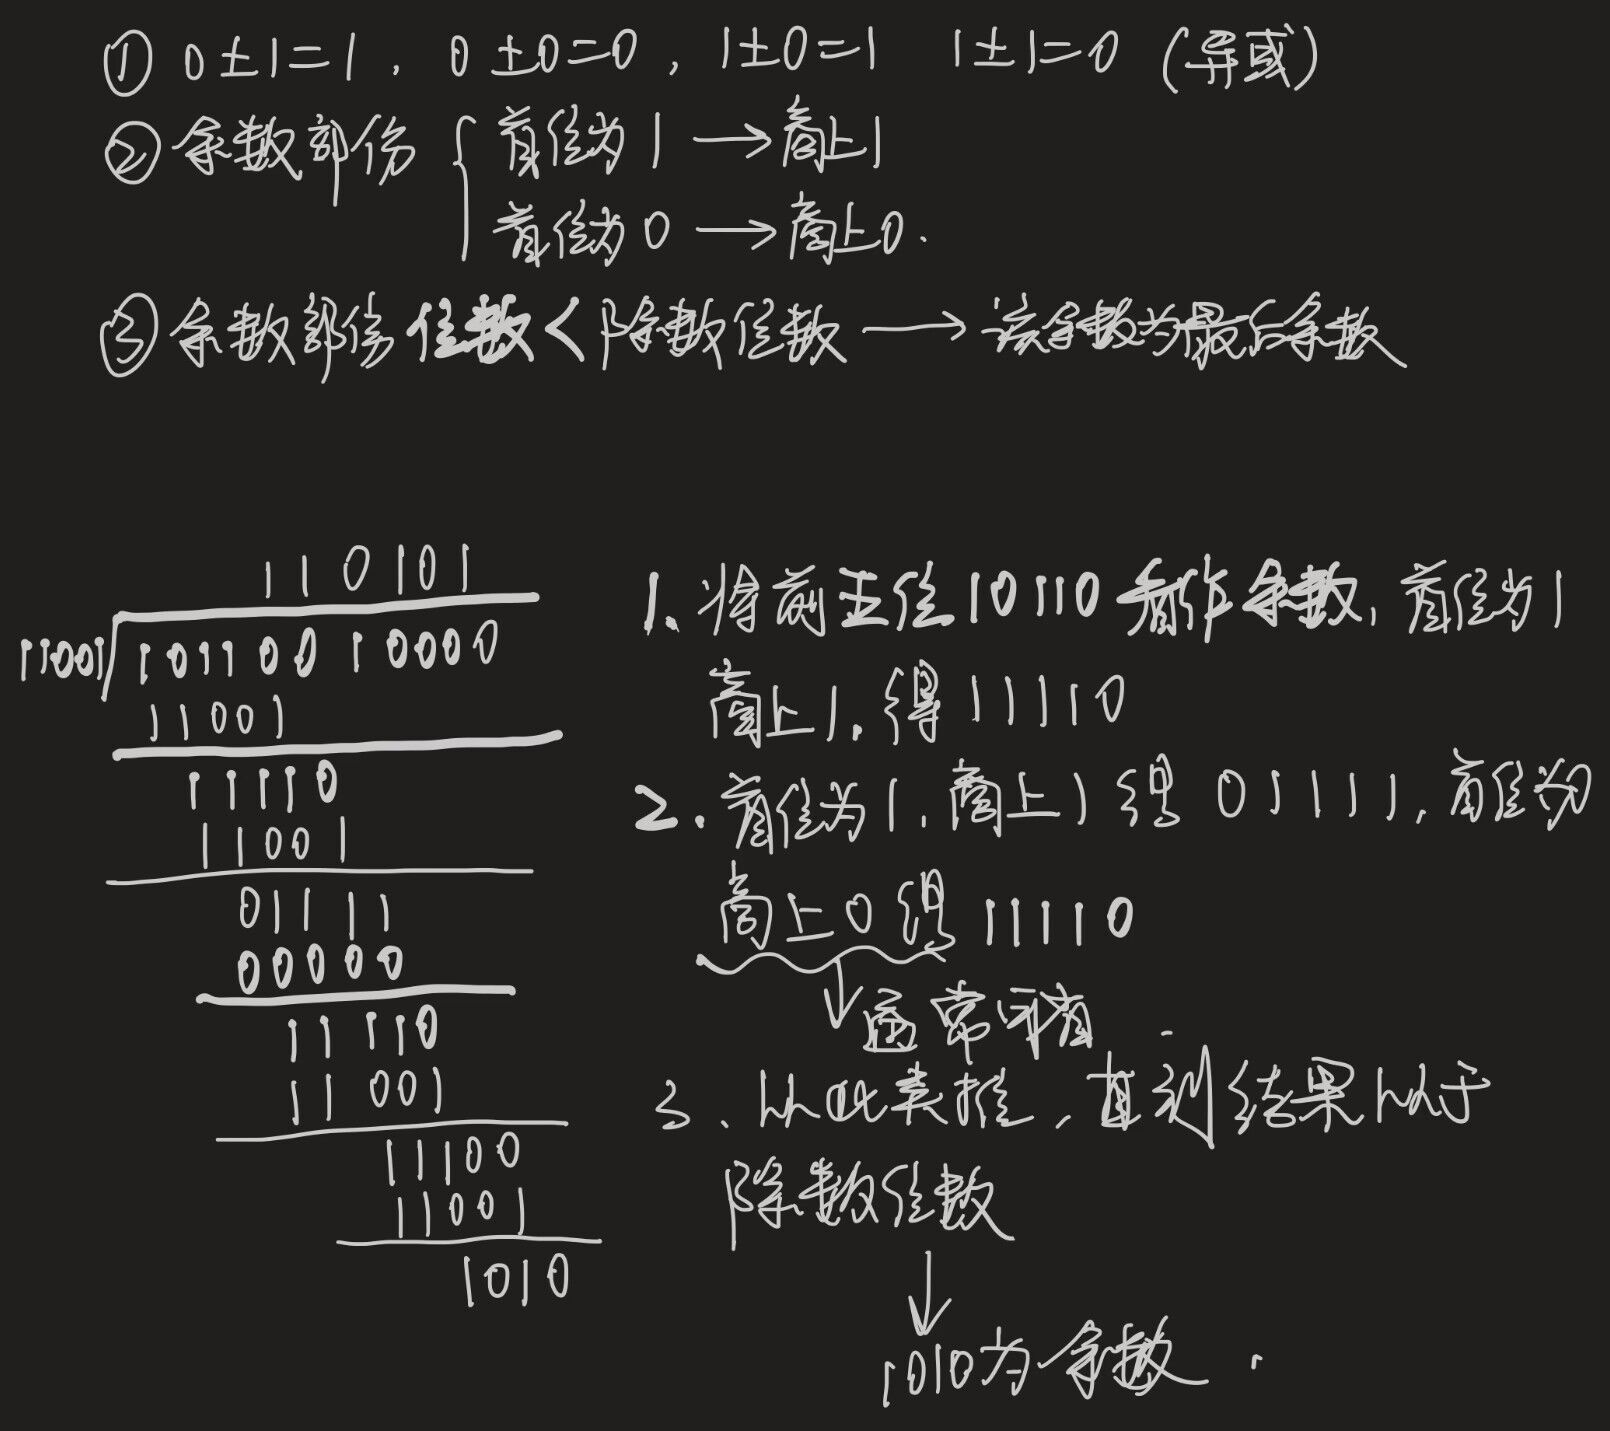 ① 0±1=1, 0±0=0, 1±0=1 1±1=0 (异或)
② 余数部份 { 首位为1 → 商上1
首位为0 → 商上0.
③ 余数部份位数 < 除数位数 → 该余数为最后余数
110101
11001
10110010000
11001
11110
11001
01111
00000
11110
11001
11100
11001
1010
1. 将前五位10110看作余数, 首位为1
商上1. 得11110
2. 首位为1, 商上1得01111, 首位为0
商上0得11110
↓通常可省
3. 以此类推, 直到结果小于
除数位数
↓
1010为余数.